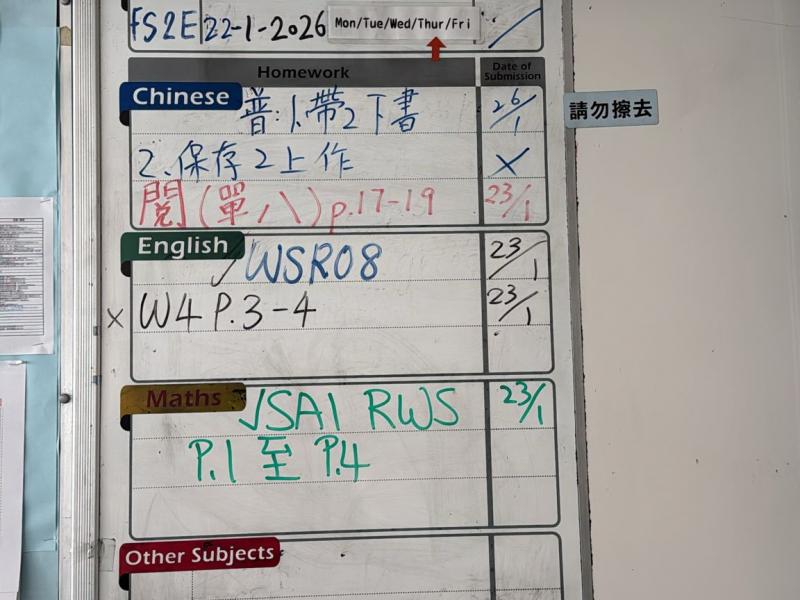 FS2E 22-1-2026 Mon/Tue/Wed/Thur/Fri
Homework Date of Submission
Chinese 普:1.帶2下書 26/1
請勿擦去
2、保存2上作 X
閱(單八)p.17-19 23/1
English ✓WSR08 23/1
X W4 P.3-4 23/1
Maths ✓SA1 RWS 23/1
P.1 至 P.4
Other Subjects